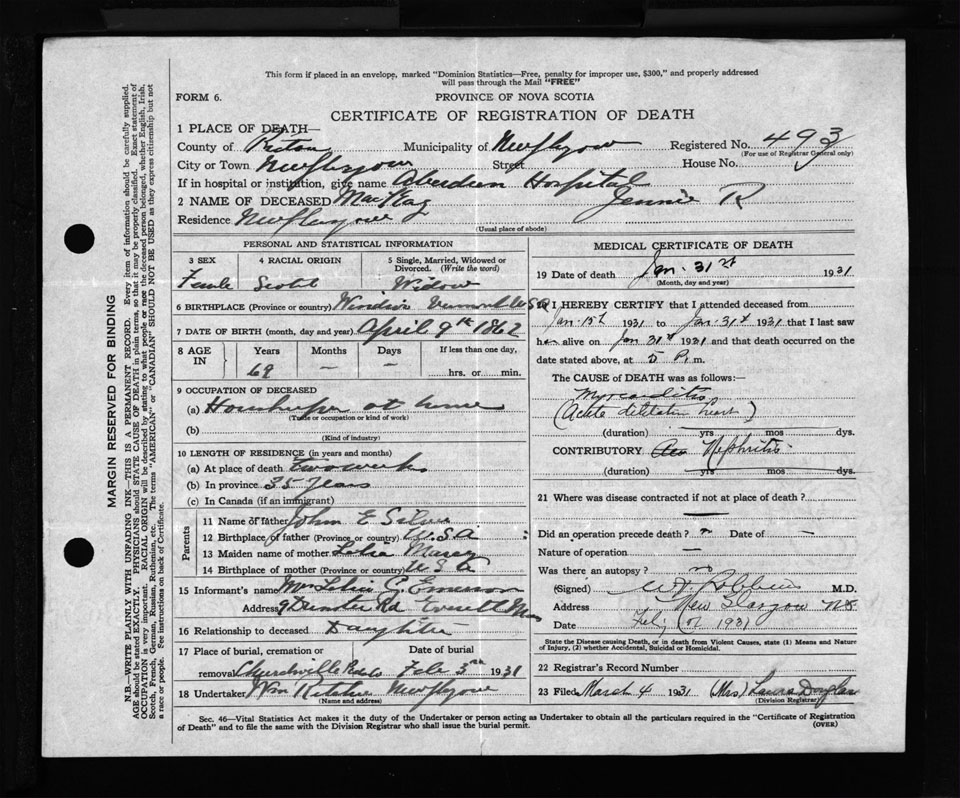 This form if placed in an envelope, marked "Dominion Statistics—Free, penalty for improper use, $300," and properly addressed
will pass through the Mail "FREE"
FORM 6.
PROVINCE OF NOVA SCOTIA
CERTIFICATE OF REGISTRATION OF DEATH
1 PLACE OF DEATH—
County of Pictou Municipality of New Glasgow Registered No. 493
(For use of Registrar General only)
City or Town New Glasgow Street House No.
If in hospital or institution, give name Aberdeen Hospital
2 NAME OF DECEASED MacKay Jennie R
Residence New Glasgow
(Usual place of abode)
PERSONAL AND STATISTICAL INFORMATION
3 SEX 4 RACIAL ORIGIN 5 Single, Married, Widowed or Divorced. (Write the word)
Female Scotch Widow
6 BIRTHPLACE (Province or country) Vermont USA
7 DATE OF BIRTH (month, day and year) April 9th 1862
8 AGE IN Years Months Days If less than one day,
69 — — hrs. or min.
9 OCCUPATION OF DECEASED
(a) Housekeeper at home
(Trade or occupation or kind of work)
(b)
(Kind of industry)
10 LENGTH OF RESIDENCE (in years and months)
(a) At place of death two weeks
(b) In province 35 years
(c) In Canada (if an immigrant)
Parents
11 Name of father John E Silver
12 Birthplace of father (Province or country) U.S.A.
13 Maiden name of mother
14 Birthplace of mother U S A
15 Informant's name Mrs C. Emerson
Address 9 Rd Everett Mass
16 Relationship to deceased Daughter
17 Place of burial, cremation or removal Date of burial
Churchville Feb 3rd 1931
18 Undertaker Wm New Glasgow
(Name and address)
MEDICAL CERTIFICATE OF DEATH
19 Date of death Jan. 31st 1931
(Month, day and year)
I HEREBY CERTIFY that I attended deceased from
Jan. 15t 1931 to Jan. 31st 1931 that I last saw
her alive on Jan 31st 1931 and that death occurred on the
date stated above, at 5 P. m.
The CAUSE of DEATH was as follows:—
Myocarditis
(Acute dilitation heart)
(duration) yrs mos dys.
CONTRIBUTORY Nephritis
(duration) yrs. mos. dys.
21 Where was disease contracted if not at place of death?
—
Did an operation precede death? Date of —
Nature of operation —
Was there an autopsy? no
(Signed) M.D.
Address New Glasgow NS
Date 1931
State the Disease causing Death, or in death from Violent Causes, state (1) Means and Nature of Injury, (2) whether Accidental, Suicidal or Homicidal.
22 Registrar's Record Number
23 Filed March 4 1931 (Mrs) Laura Douglas
(Division Registrar)
Sec. 46—Vital Statistics Act makes it the duty of the Undertaker or person acting as Undertaker to obtain all the particulars required in the "Certificate of Registration
of Death" and to file the same with the Division Registrar who shall issue the burial permit.
(OVER)
MARGIN RESERVED FOR BINDING
N.B.—WRITE PLAINLY WITH UNFADING INK—THIS IS A PERMANENT RECORD. Every item of information should be carefully supplied.
AGE should be stated EXACTLY. PHYSICIANS should STATE CAUSE OF DEATH in plain terms, so that it may be properly classified. Exact statement of
OCCUPATION is very important. RACIAL ORIGIN will be described by stating to what people or race the deceased person belonged, whether English, Irish,
Scotch, French, German, Russian, Ruthenian, etc. The terms "AMERICAN" or "CANADIAN" SHOULD NOT BE USED as they express citizenship but not
a race or people. See instructions on back of Certificate.